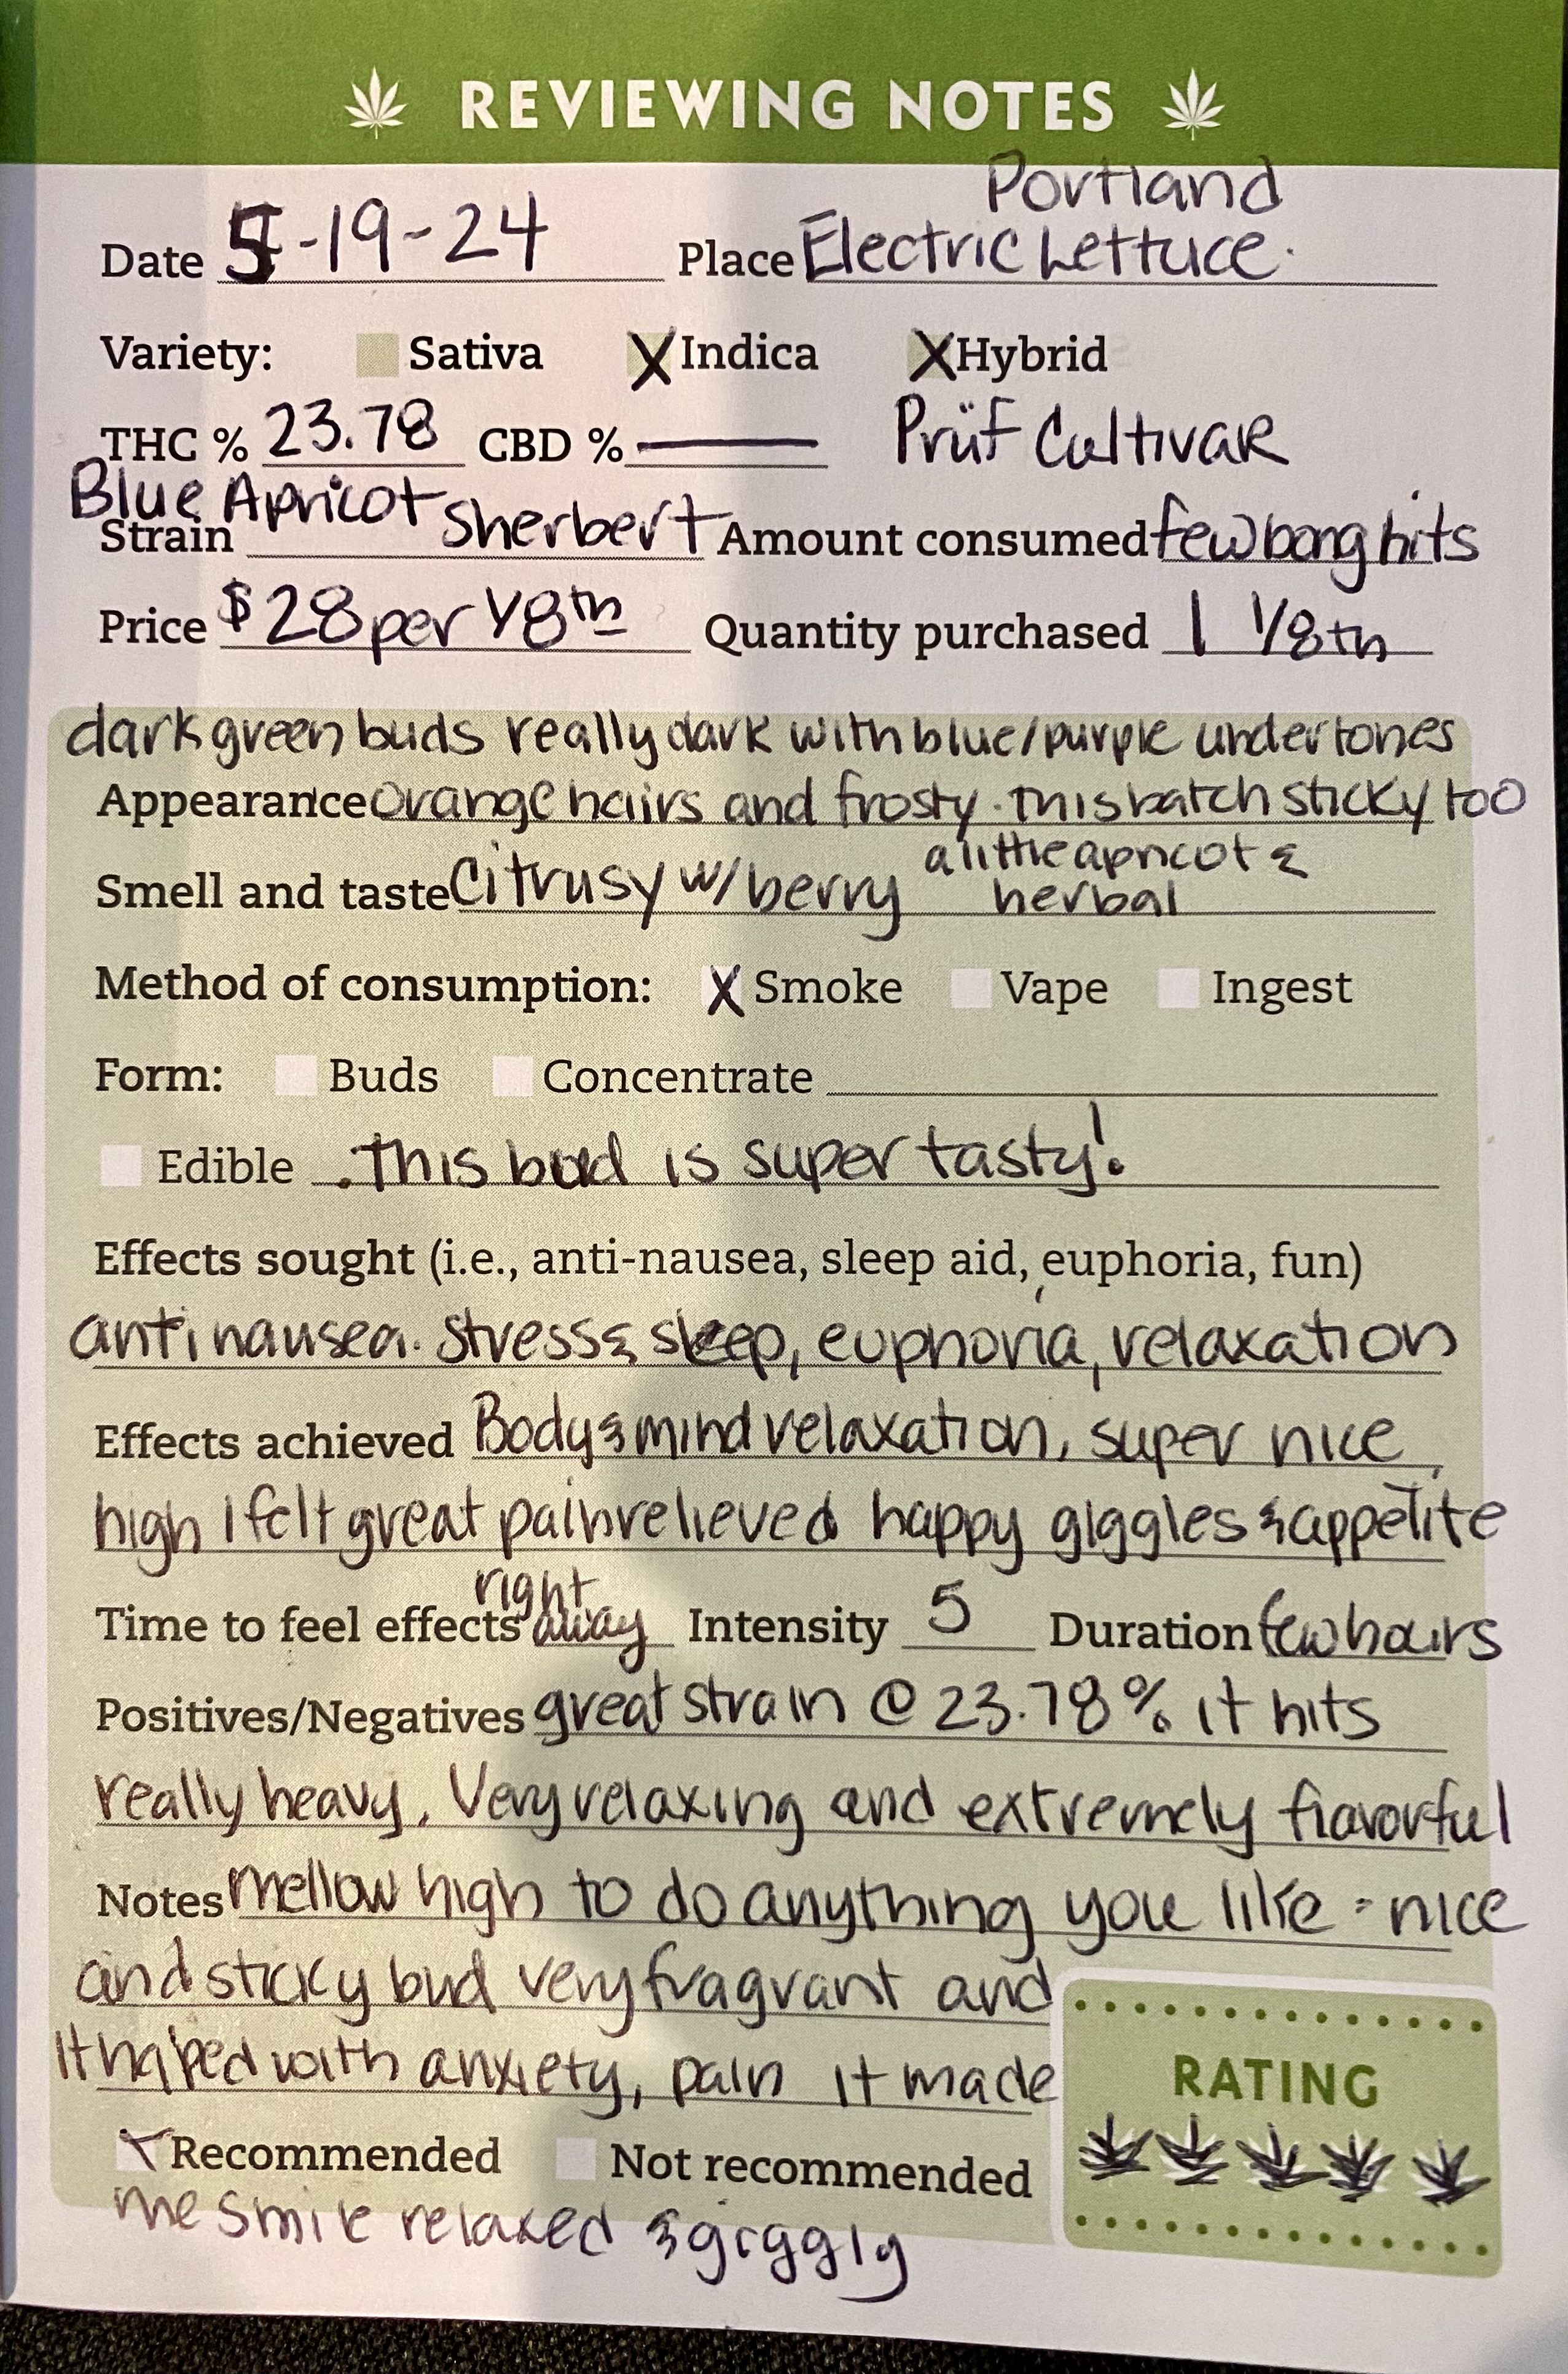 REVIEWING NOTES
Portland
Date 5-19-24 Place Electric Lettuce.
Variety: Sativa X Indica X Hybrid
THC % 23.78 CBD % — Prüf Cultivar
Blue Apricot Sherbert
Strain Amount consumed few bong hits
Price $28 per 1/8th Quantity purchased 1 1/8th
dark green buds really dark with blue/purple undertones
Appearance orange hairs and frosty. this batch sticky too
a little apricot &
Smell and taste Citrusy w/ berry herbal
Method of consumption: X Smoke Vape Ingest
Form: Buds Concentrate
Edible . This bud is super tasty!
Effects sought (i.e., anti-nausea, sleep aid, euphoria, fun)
anti nausea. stress & sleep, euphoria, relaxation
Effects achieved Body & mind relaxation, super nice
high I felt great pain relieved happy giggles & appetite
right
Time to feel effects away Intensity 5 Duration few hours
Positives/Negatives great strain @ 23.78% it hits
really heavy. Very relaxing and extremely flavorful
Notes mellow high to do anything you like - nice
and sticky bud very fragrant and
It helped with anxiety, pain it made
RATING
Recommended Not recommended
me smile relaxed & giggly